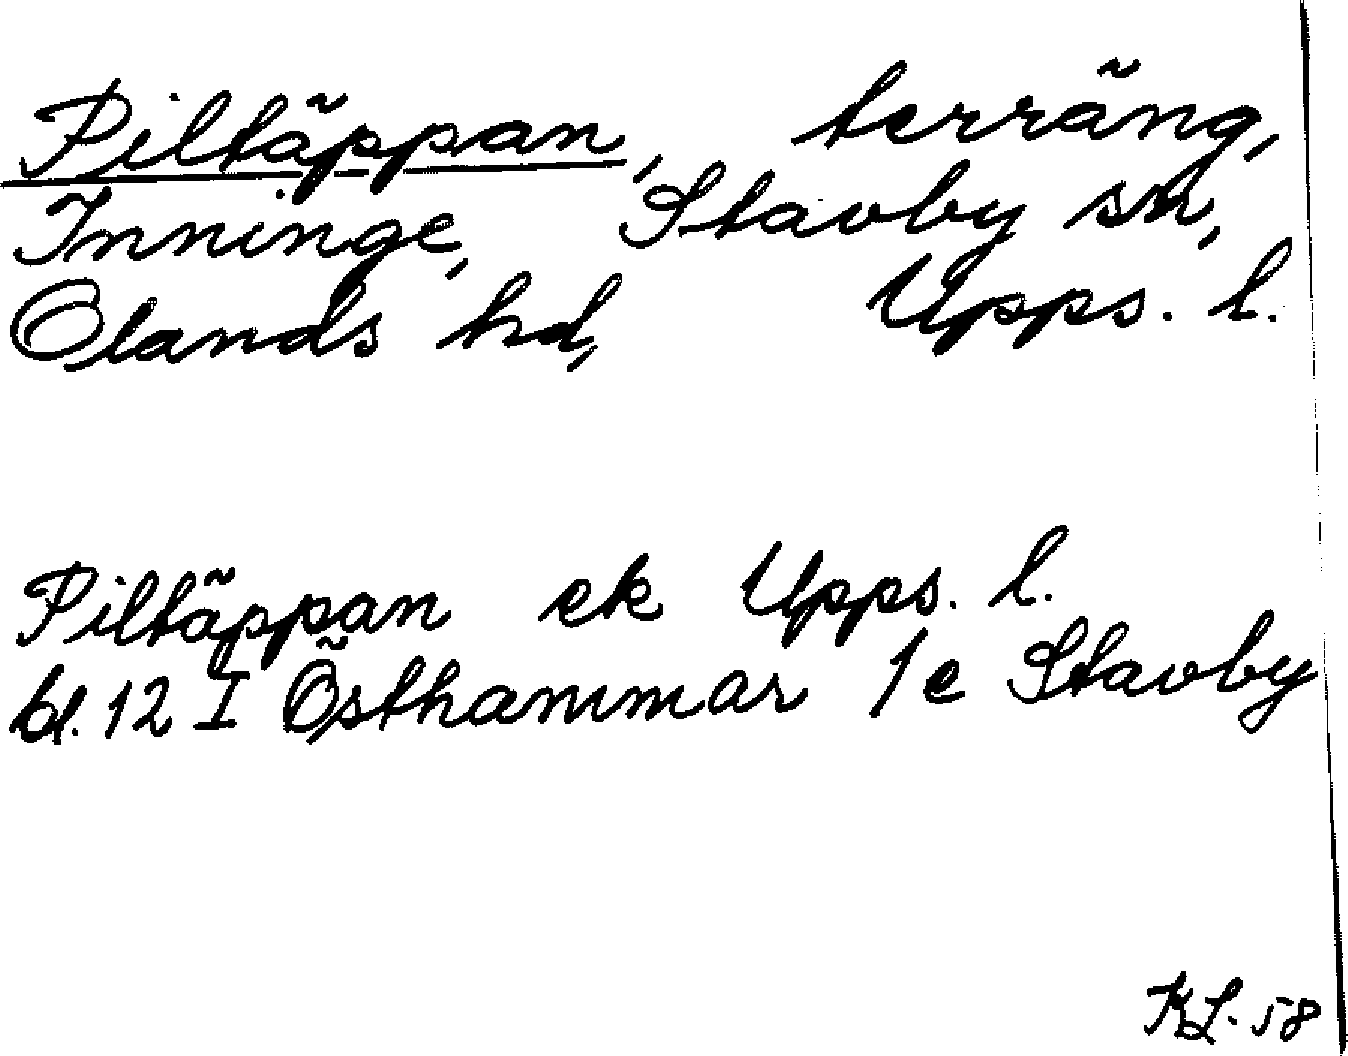 Piltäppan, terräng,
Inninge, Stavby sn,
Olands hd, Upps. l.
Piltäppan ek Upps. l.
bl. 12 I Östhammar 1e Stavby
KL. 58